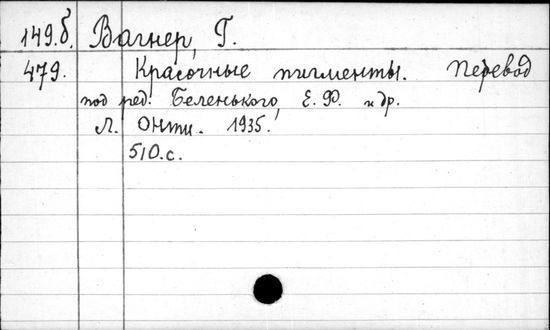 149.б. Вагнер, Г.
479. Красочные пигменты. Перевод
под ред. Беленького, Е. Ф. и др.
Л. Онти. 1935.
510.с.